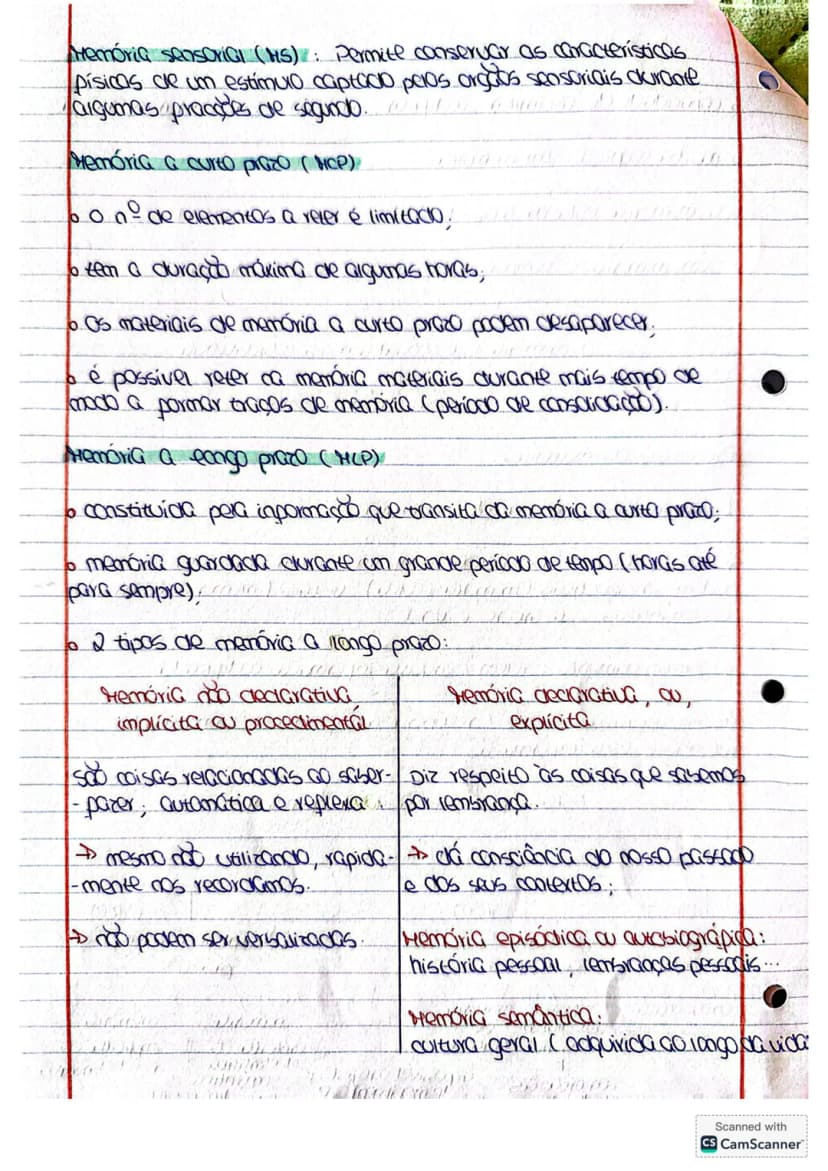 Memória sensorial (MS): Permite conservar as características
físicas de um estímulo captado pelos orgãos sensoriais durante
algumas fracções de segundo.
Memória a curto prazo (MCP)
o nº de elementos a reter é limitado;
tem a duração máxima de algumas horas;
Os materiais de memória a curto prazo podem desaparecer;
é possível reter da memória materiais durante mais tempo de
modo a formar traços de memória (período de consolidação).
Memória a longo prazo (MLP)
constituída pela informação que transita da memória a curto prazo;
memória guardada durante um grande período de tempo (horas até
para sempre);
2 tipos de memória a longo prazo:
Memória não declarativa,
implícita ou procedimental
são coisas relacionadas ao saber-
-fazer; automática e reflexa.
→ mesmo não utilizando, rapida-
-mente nos recordamos.
→ não podem ser verbalizadas.
Memória declarativa, ou,
explícita
Diz respeito às coisas que sabemos
por lembrança.
→ dá consciência do nosso passado
e dos seus contextos;
Memória episódica ou autobiográfica:
história pessoal, lembranças pessoais...
Memória semântica:
cultura geral (adquirida ao longo da vida
Scanned with
CS CamScanner